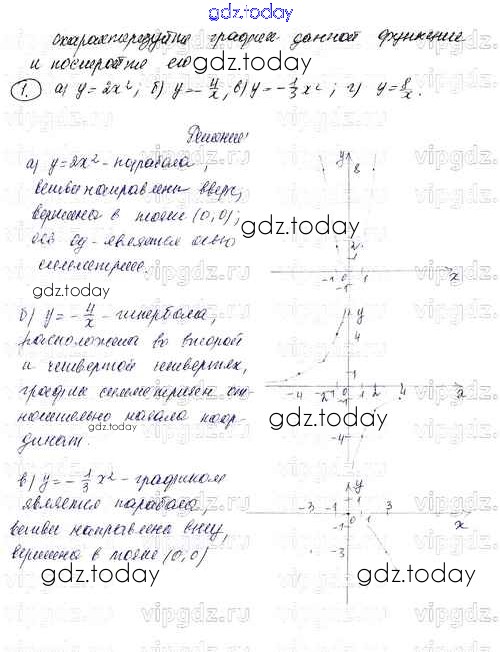 gdz.today
охарактеризуйте график данной функции
и постройте его
gdz.today
1. а) y = 2x²; б) y = -4/x; в) y = -1/3 x²; г) y = 8/x.
Решение
vipgdz.ru
а) y = 2x² - парабола,
ветви направлены вверх,
вершина в точке (0,0);
ось oy - является осью
симметрии.
gdz.today
gdz.today
y
8
2
1
-1 0 1
-1
x
б) y = -4/x - гипербола,
расположена во второй
и четвертой четвертях,
график симметричен от-
носительно начала коор-
динат.
gdz.today
gdz.today
y
4
1
-4 -2 -1 0 1 2 4
-1
-4
x
в) y = -1/3 x² - графиком
является парабола,
ветви направлены вниз,
вершина в точке (0,0)
y
-3 -1 0 1 3
-1
-3
x
gdz.today
gdz.today
vipgdz.ru